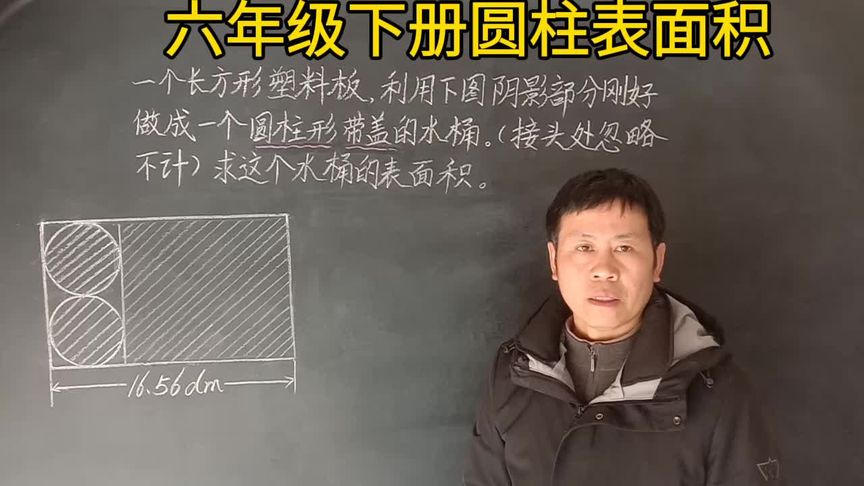 六年级下册圆柱表面积
一个长方形塑料板,利用下图阴影部分刚好
做成一个圆柱形带盖的水桶。(接头处忽略
不计)求这个水桶的表面积。
16.56dm